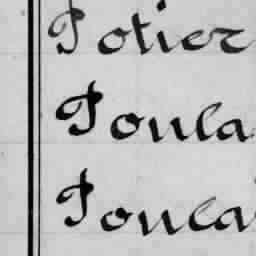 Potier
Poula
Poula